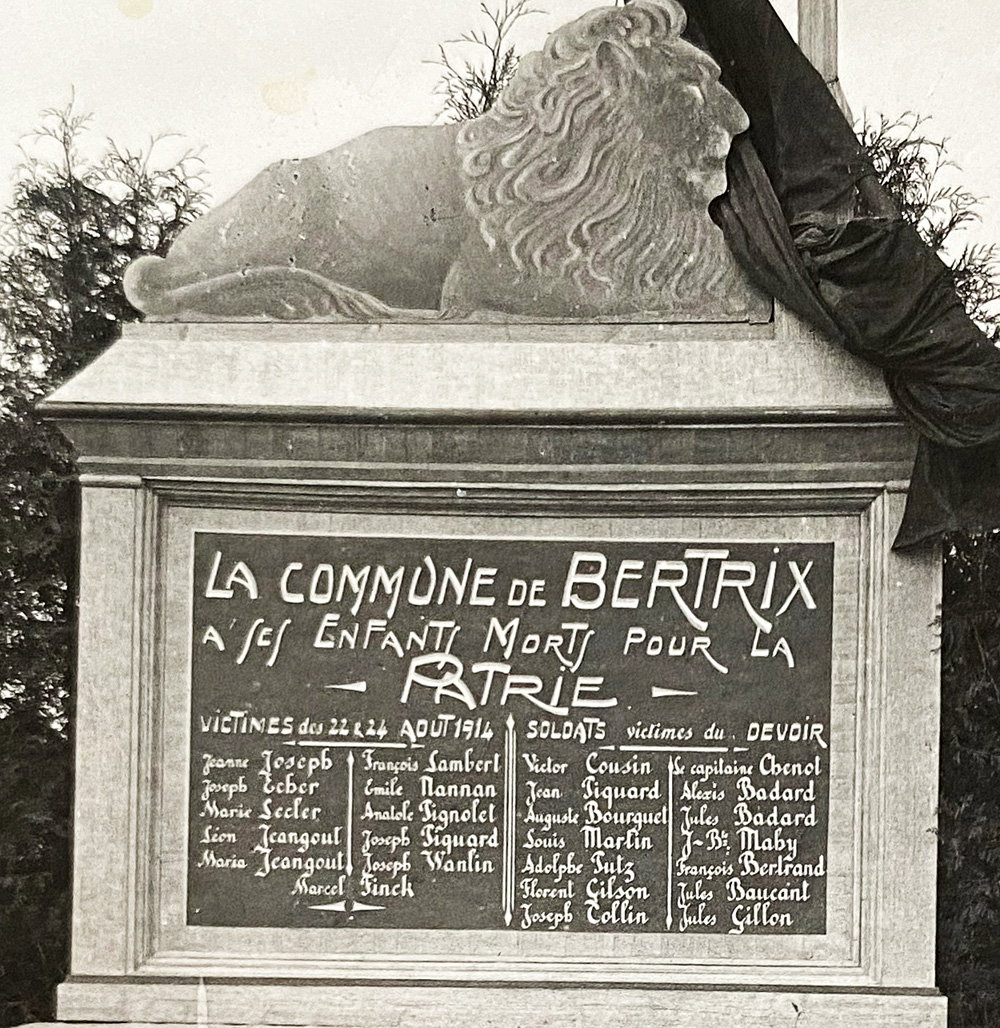 LA COMMUNE DE BERTRIX
A SES ENFANTS MORTS POUR LA
PATRIE
VICTIMES des 22 & 24 AOUT 1914
Jeanne Joseph
Joseph Ecber
Marie Lecler
Léon Jeangout
Maria Jeangout
François Lambert
Emile Nannan
Anatole Pignolet
Joseph Piquard
Joseph Wanlin
Marcel Finck
SOLDATS victimes du DEVOIR
Victor Cousin
Jean Piquard
Auguste Bourguet
Louis Martin
Adolphe Putz
Florent Gilson
Joseph Collin
Le capitaine Chenot
Alexis Badard
Jules Badard
J-Bte Maby
François Bertrand
Jules Baucant
Jules Gillon